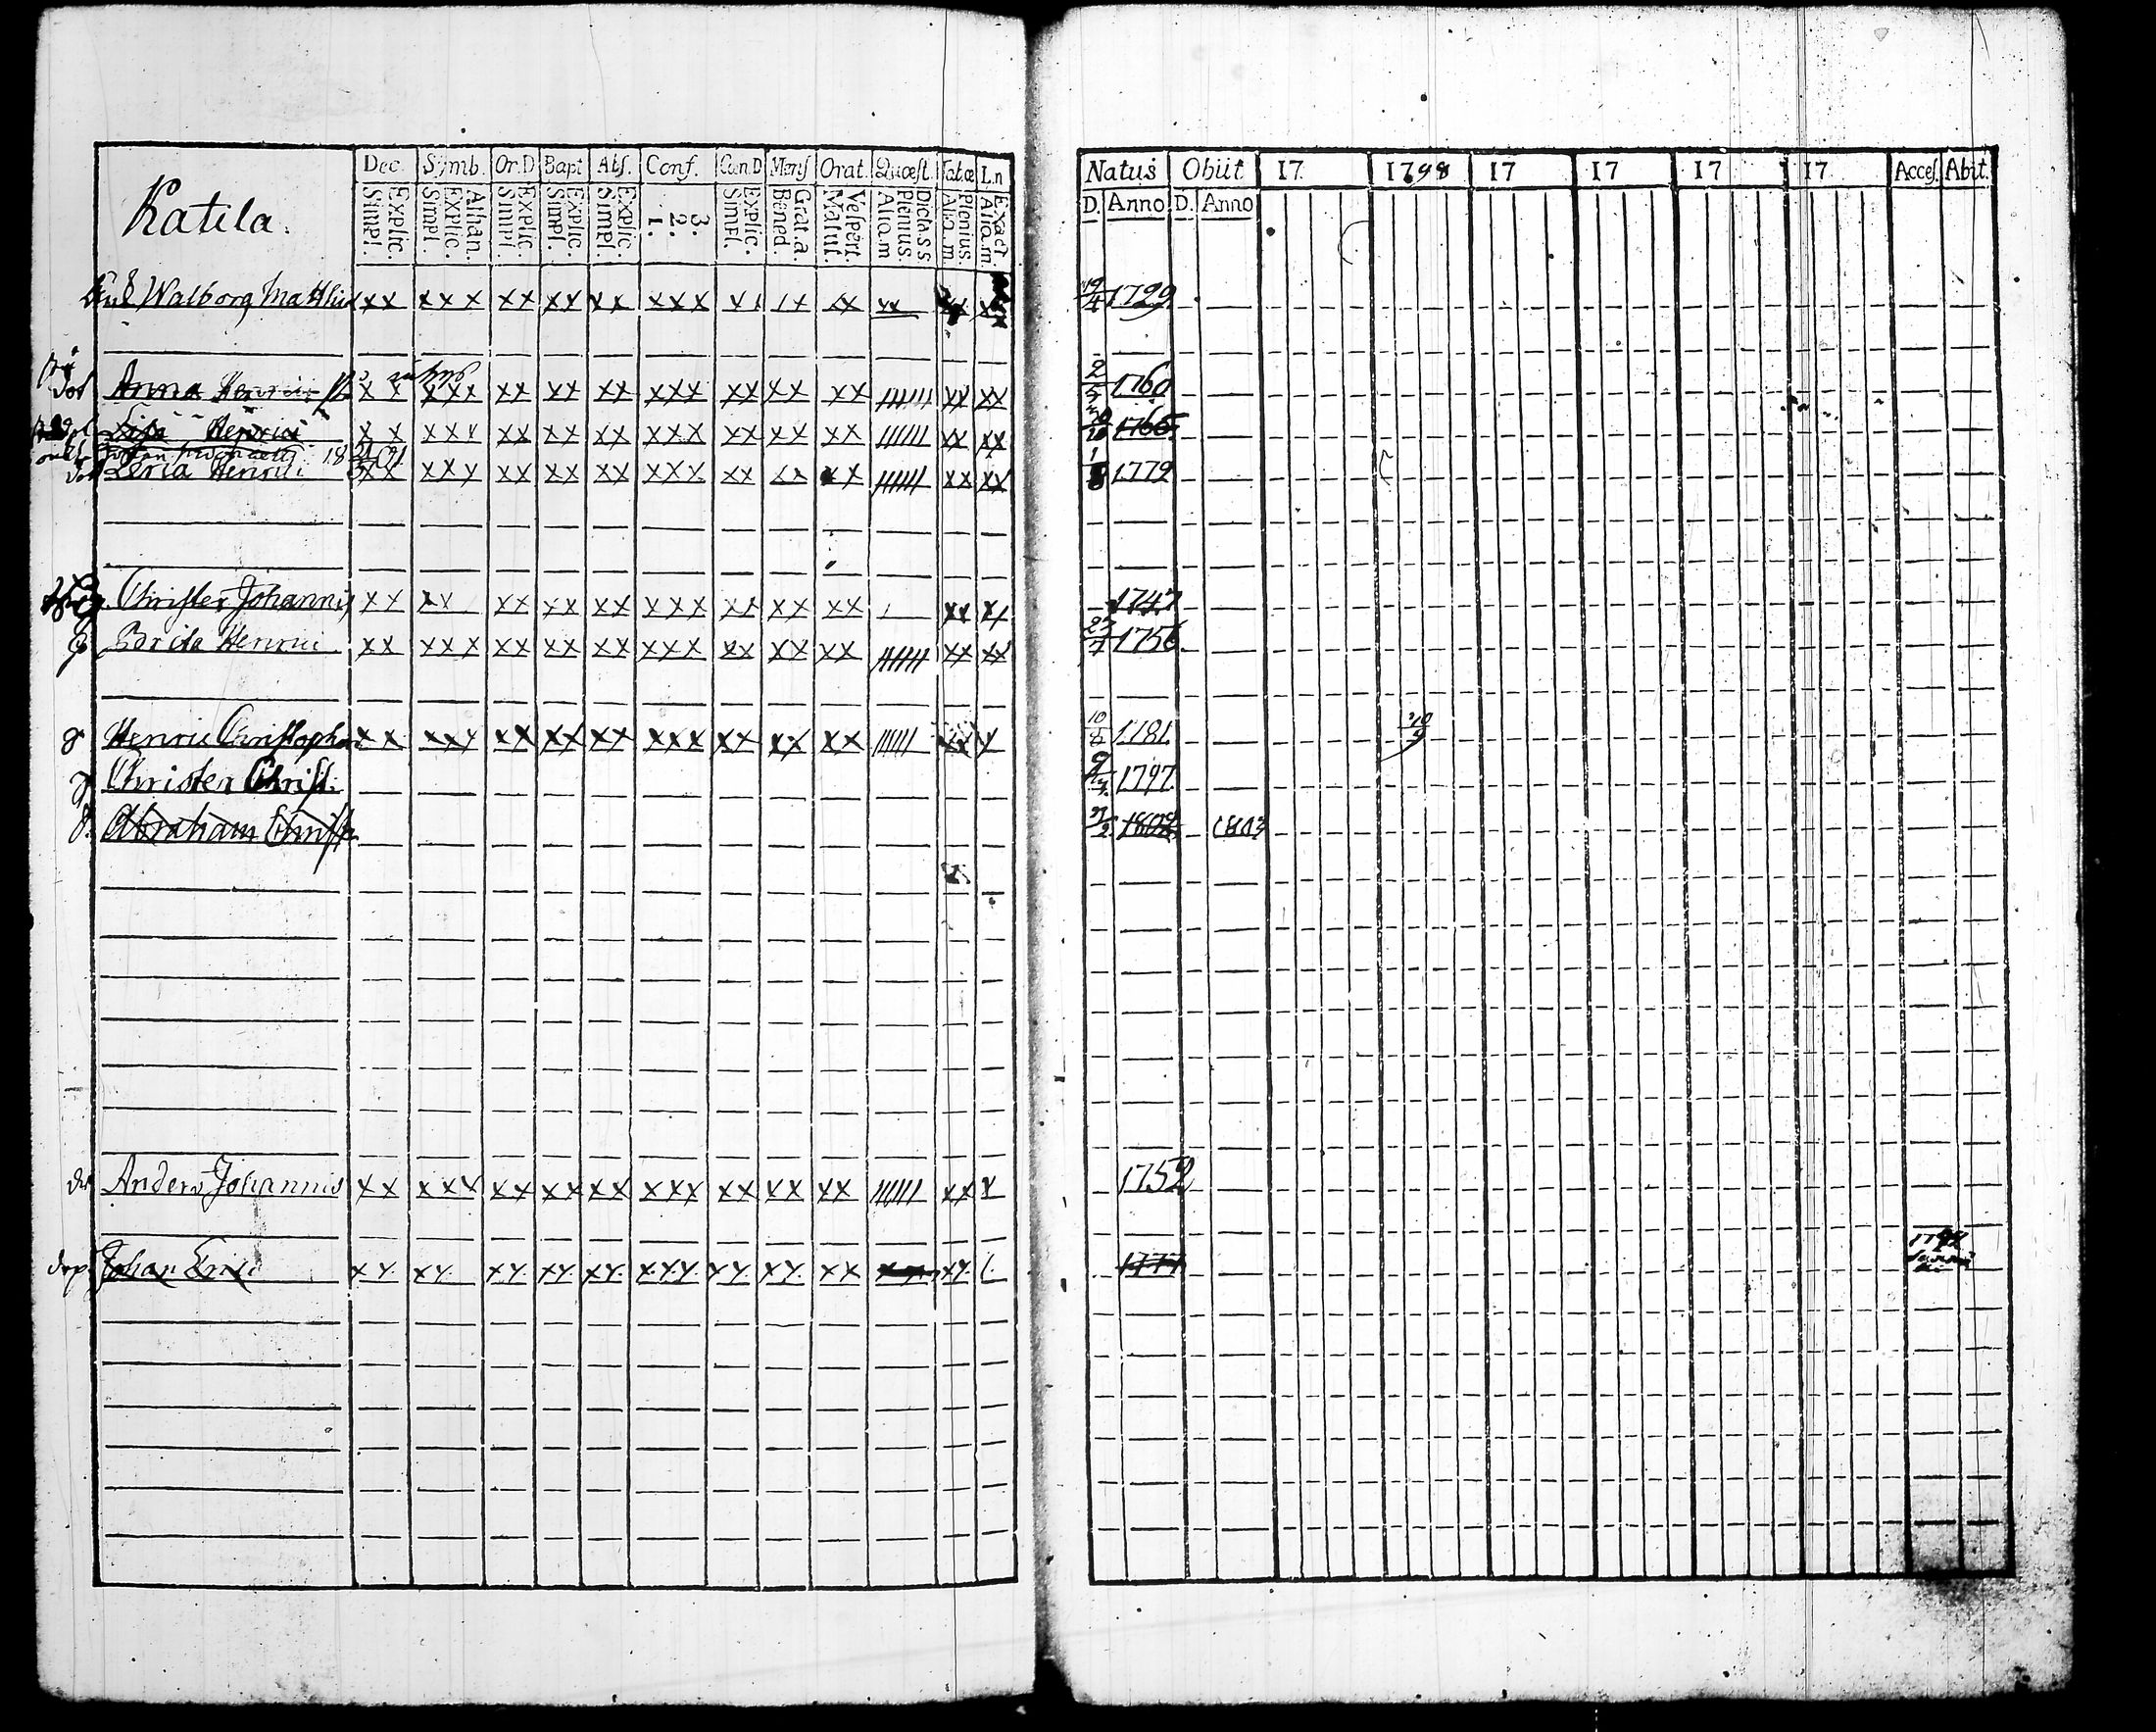 Katila.
Dec. Symb. Or.D Bapt Abs. Conf. Can.D Mens Orat. Quæst. Tabæ L.n
Explic. Simpl. Athan. Explic. Simpl. Explic. Simpl. Explic. Simpl. Explic. Simpl. 3. 2. 1. Explic. Simpl. Grat.a Bened. Vespert. Matut. Dict.a s s Plenius Aliq.m Plenius. Aliq.m Exact. Aliq.m.
Natus Obiit 17 1798 17 17 17 17 Acces. Abit.
D. Anno D. Anno
Walborg Matthiæ xx xxx xx xx xx xxx xx xx xx xx 19/4 1729
Anna Henrici x x xxx xx xx xx xxx xx xx xx |||||| xx xx 2/5 1760
Lisa Henrici x x xxx xx xx xx xxx xx xx xx |||||| xx xx 1765
Johan
Leria Henrici xx xxx xx xx xx xxx xx xx xx |||||| xx xx 1779
Christer Johannis xx xx xx xx xx xxx xx xx xx xx xx 1747
Brita Henrici xx xxx xx xx xx xxx xx xx xx |||||| xx xx 23/7 1756
Henric Christophori xx xxx xx xx xx xxx xx xx xx |||||| xx x 10/8 1781
Christer Christ. 1797
Abraham Christ 1803
Anders Johannis xx xxx xx xx xx xxx xx xx xx |||||| xx x 1752
Johan Erici xx xx xx xx xx xxx xx xx xx xx 1777